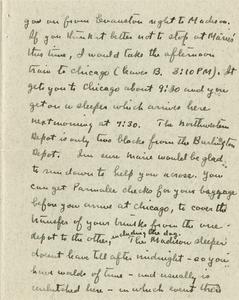 you on from Evanston right to Madison.
If you think it better not to stop at Marie's
this time, I would take the afternoon
train to Chicago (leaves B. 3:10 P.M.). It
gets you to Chicago about 9:30 and you
get on a sleeper which arrives here
next morning at 7:30. The Northwestern
Depot is only two blocks from the Burlington
Depot. I'm sure Marie would be glad
to run down to help you across. You
can get Parmalee checks for your baggage
before you arrive at Chicago, to cover the
transfer of your trunks from the one
depot to the other, including the dog. The Madison sleeper
doesn't leave till after midnight - so you
have worlds of time - and usually is
unhitched here - in which event there